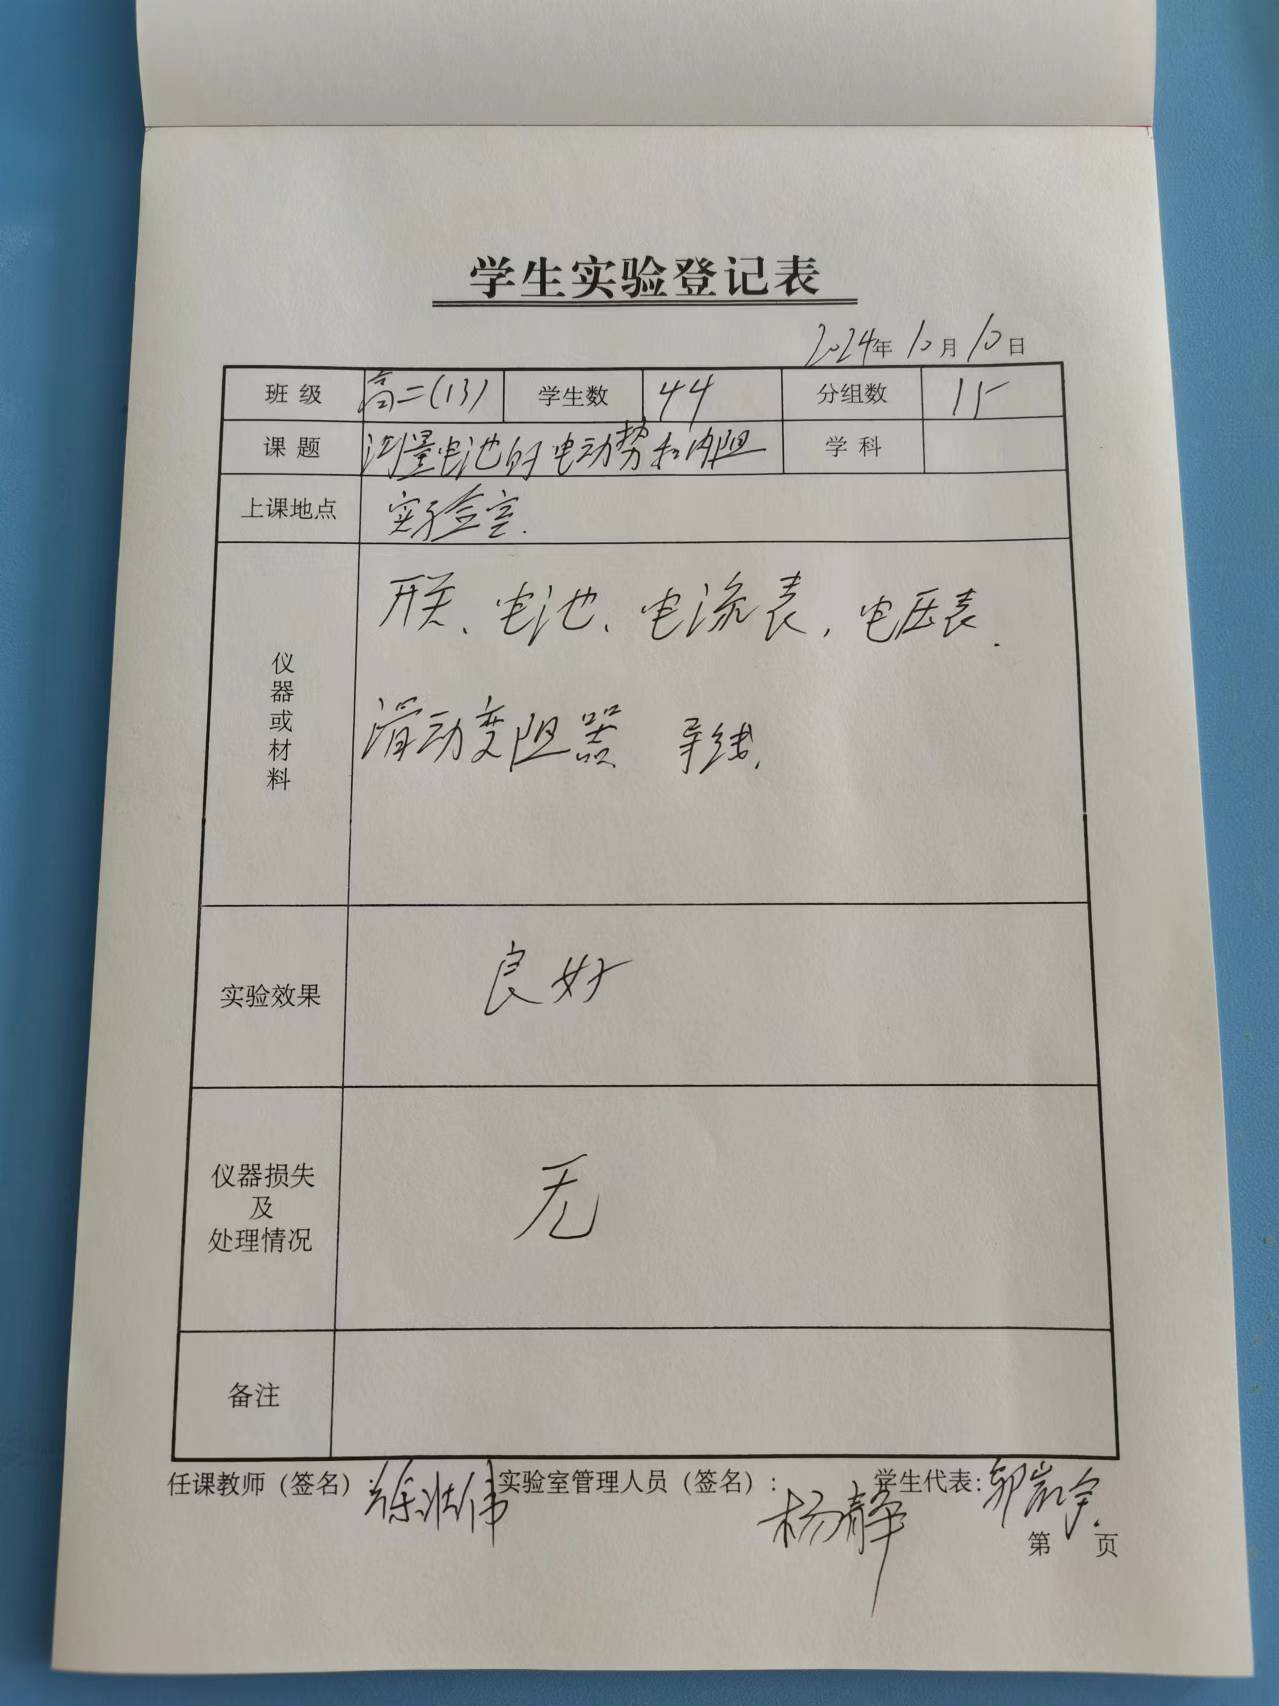 学生实验登记表
2024年10月10日
班级 高二(13) 学生数 44 分组数 15
课题 测量电池的电动势和内阻 学科
上课地点 实验室.
仪器或材料
开关、电池、电流表,电压表.
滑动变阻器 导线.
实验效果 良好
仪器损失
及
处理情况
无
备注
任课教师(签名) 实验室管理人员(签名): 杨静 学生代表:
第 页